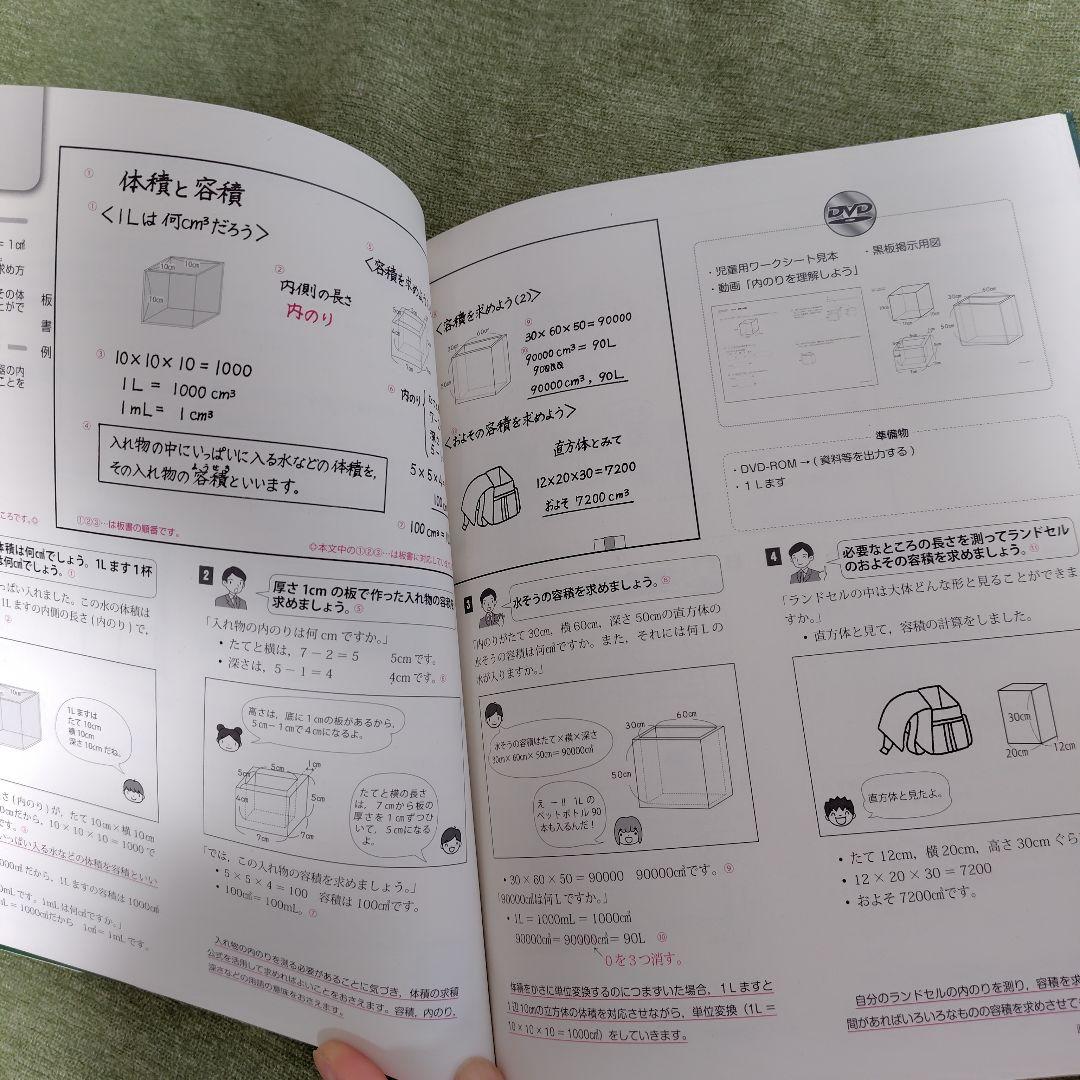 = 1㎤
求め方
その体
とがで
器の内
ことを
板書例
① 体積と容積
① <1Lは何cm³だろう>
10cm
10cm
10cm
② 内側の長さ
内のり
③ 10×10×10=1000
1L = 1000 cm³
1mL = 1 cm³
④ 入れ物の中にいっぱいに入る水などの体積を、
その入れ物の容積といいます。
ようせき
⑤
<容積を求めよう
⑥ 内のり
5×5×4
⑦ 100 cm³=
①②③…は板書の順番です。
◎本文中の①②③…は板書に対応してい
<容積を求めよう(2)>
60cm
30cm
50cm
⑨ 30×60×50=90000
⑩ 90000 cm³ = 90L
90000
90000 cm³, 90L
⑪
<およその容積を求めよう>
直方体とみて
12×20×30=7200
およそ 7200 cm³
DVD
・児童用ワークシート見本
・黒板掲示用図
・動画「内のりを理解しよう」
準備物
・DVD-ROM → (資料等を出力する)
・1Lます
ころです。◎
体積は何㎤でしょう。1Lます1杯
は何㎤でしょう。①
っぱい入れました。この水の体積は
1Lますの内側の長さ(内のり)で,
②
10cm
1Lますは
たて10cm
横10cm
深さ10cmだね。
さ(内のり)が,たて10cm×横10cm
0cmだから,10×10×10=1000で
です。③
いっぱい入る水などの体積を容積といい
000㎤だから,1Lますの容積は1000㎤
0mLです。1mLは何㎤ですか。」
mL=1000㎤だから 1㎤=1mLです。
2
厚さ1cmの板で作った入れ物の容積を
求めましょう。⑤
「入れ物の内のりは何cmですか。」
・たてと横は,7-2=5 5cmです。
・深さは,5-1=4 4cmです。⑥
高さは,底に1cmの板があるから,
5cm-1cmで4cmになるよ。
5cm
5cm
1cm
4cm
5cm
7cm
7cm
たてと横の長さ
は,7cmから板の
厚さを1cmずつひ
いて,5cmになる
よ。
「では,この入れ物の容積を求めましょう。」
・5×5×4=100 容積は100㎤です。
・100㎤=100mL。⑦
入れ物の内のりを測る必要があることに気づき,体積の求積
公式を活用して求めればよいことをおさえます。容積,内のり,
深さなどの用語の意味をおさえます。
3
水そうの容積を求めましょう。⑧
「内のりがたて30cm,横60cm,深さ50cmの直方体の
水そうの容積は何㎤ですか。また,それには何Lの
水が入りますか。」
水そうの容積はたて×横×深さ
30cm×60cm×50cm=90000㎤
60cm
30cm
50cm
え ー!! 1Lの
ペットボトル90
本も入るんだ!
・30×60×50=90000 90000㎤です。⑨
「90000㎤は何Lですか。」
・1L=1000mL=1000㎤
90000㎤=90000㎤=90L ⑩
0を3つ消す。
体積をかさに単位変換するのにつまずいた場合,1Lますと
1辺10cmの立方体の体積を対応させながら,単位変換(1L=
10×10×10=1000㎤)をしていきます。
4
必要なところの長さを測ってランドセル
のおよその容積を求めましょう。⑪
「ランドセルの中は大体どんな形と見ることができま
すか。」
・直方体と見て,容積の計算をしました。
30cm
20cm
12cm
直方体と見たよ。
・たて12cm,横20cm,高さ30cmぐら
・12×20×30=7200
・およそ7200㎤です。
自分のランドセルの内のりを測り,容積を求
間があればいろいろなものの容積を求めさせて